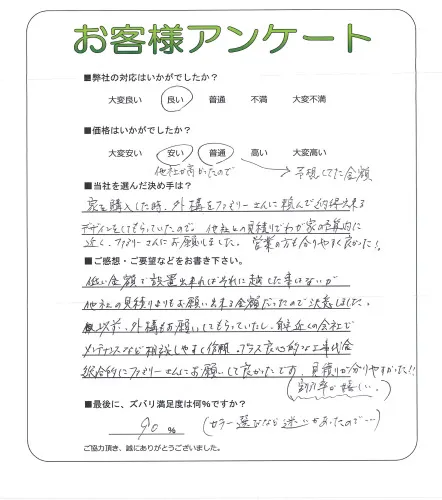 お客様アンケート
■弊社の対応はいかがでしたか？
大変良い 良い 普通 不満 大変不満
■価格はいかがでしたか？
大変安い 安い 普通 高い 大変高い
他社が高かったので 予想してた金額
■当社を選んだ決め手は？
家を購入した時、外構をファミリーさんに頼んで納得出来る
デザインをしてもらっていたので。他社との見積りでわが家の予算内に
近く、ファミリーさんにお願いしました。営業の方も分りやすく良かった!!
■ご感想・ご要望などをお書き下さい。
低い金額で設置出来ればそれに越した事はないが
他社の見積りよりもお願い出来る金額だったので決意しました。
以前、外構もお願いしてもらっていたし、近くの会社で
メンテナンスなど相談しやすく信頼、プラス良心的な工事代金
総合的にファミリーさんにお願いして良かったです。見積りが分りやすかった!!
(割引率が嬉しい。)
■最後に、ズバリ満足度は何％ですか？
90 % (カラー選びなど迷いがあったので…)
ご協力頂き、誠にありがとうございました。